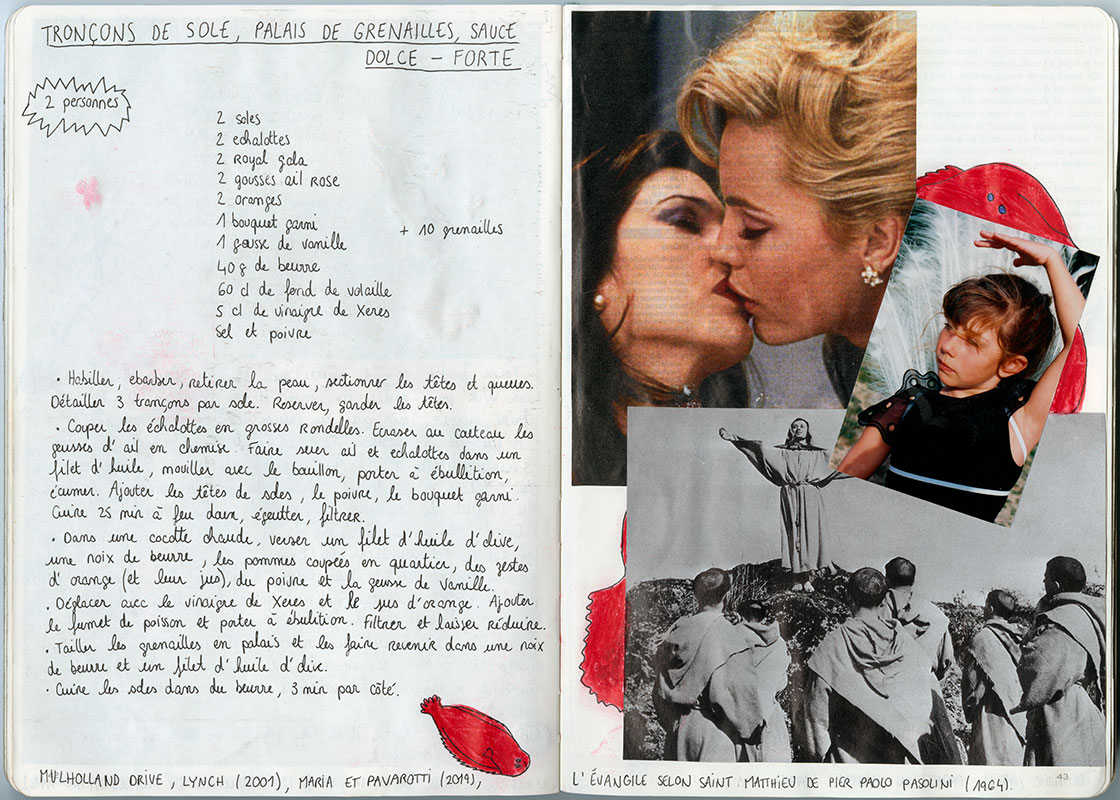 TRONÇONS DE SOLE, PALAIS DE GRENAILLES, SAUCE
DOLCE - FORTE
2 personnes
2 soles
2 echalottes
2 Royal gala
2 gousses ail rose
2 oranges
1 bouquet garni
1 gousse de vanille
40g de beurre
60 cl de fond de volaille
5 cl de vinaigre de Xeres
Sel et poivre
+ 10 grenailles
• Habiller, ebarber, retirer la peau, sectionner les têtes et queues.
Détailler 3 tronçons par sole. Reserver, garder les têtes.
• Couper les échalottes en grosses rondelles. Ecraser au couteau les
gousses d'ail en chemise. Faire suer ail et echalottes dans un
filet d'huile, mouiller avec le bouillon, porter à ébullition,
écumer. Ajouter les têtes de soles, le poivre, le bouquet garni.
Cuire 25 min à feu doux, égoutter, filtrer.
• Dans une cocotte chaude, verser un filet d'huile d'olive,
une noix de beurre, les pommes coupées en quartier, des zestes
d'orange (et leur jus), du poivre et la gousse de vanille.
• Déglacer avec le vinaigre de Xeres et le jus d'orange. Ajouter
le fumet de poisson et porter à ébulition. Filtrer et laisser réduire.
• Tailler les grenailles en palais et les faire revenir dans une noix
de beurre et un filet d'huile d'olive.
• Cuire les soles dans du beurre, 3 min par côté.
MULHOLLAND DRIVE, LYNCH (2001), MARIA ET PAVAROTTI (2019),
L'ÉVANGILE SELON SAINT MATTHIEU DE PIER PAOLO PASOLINI (1964).
43